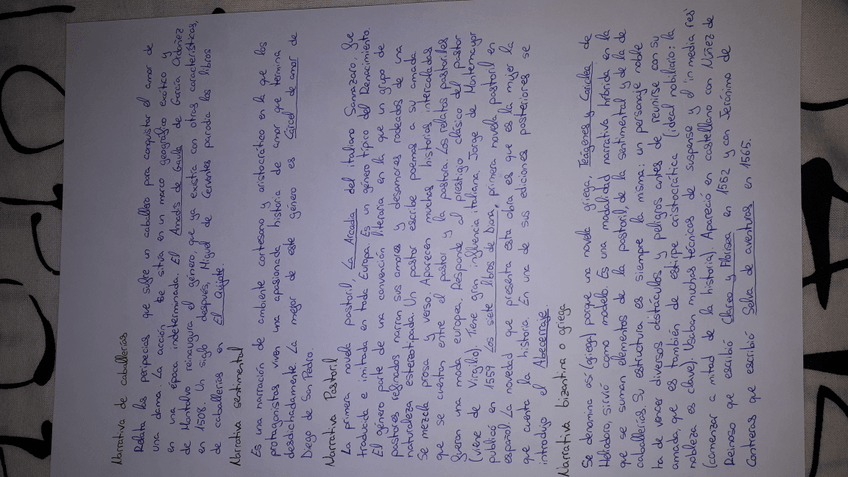 Narrativa de caballerías
Relata las peripecias que sufre un caballero para conquistar el amor de
una dama. La acción se sitúa en un marco geográfico exótico y
en una época indeterminada. El Amadís de Gaula de García Ordoñez
de Montalvo reinaugura el género, que ya existía con otras características,
en 1508. Un siglo después, Miguel de Cervantes parodia los libros
de caballerías en El Quijote
Narrativa sentimental
Es una narración de ambiente cortesano y aristocrático en la que los
protagonistas viven una apasionada historia de amor que termina
desdichadamente. La mejor de este género es Cárcel de amor de
Diego de San Pedro.
Narrativa Pastoril
La primera novela pastoril, La Arcadia del italiano Sannazaro, fue
traducida e imitada en toda Europa. Es un género típico del Renacimiento.
El género parte de una convención literaria en la que un grupo de
pastores refinados narran sus amores y desamores rodeados de una
naturaleza estereotipada. Un pastor escribe poemas a su amada
Se mezcla prosa y verso. Aparecen muchas historias intercaladas
que se cuentan entre el pastor y la pastora. Los relatos pastoriles
fueron una moda europea. Responde al prestigio clásico del pastor
(viene de Virgilio). Tiene gran influencia italiana. Jorge de Montemayor
publicó en 1559 Los siete libros de Diana, primera novela pastoril en
español. La novedad que presenta esta obra es que es la mujer la
que cuenta la historia. En una de sus ediciones posteriores se
introdujo el Abencerraje.
Narrativa bizantina o griega
Se denomina as (griega) porque una novela griega, Teágenes y Cariclea de
Heliodoro, sirvió como modelo. Es una modalidad narrativa híbrida en la
que se suman elementos de la pastoril, de la sentimental y de la de
caballerías. Su estructura es siempre la misma: un personaje noble
ha de vencer diversos obstáculos y peligros antes de reunirse con su
amada, que es también de estirpe aristocrática (ideal nobiliario: la
nobleza es clave). Usaban muchas técnicas de suspense y el in media res
(comenzar a mitad de la historia). Apareció en castellano con Núñez de
Reinoso que escribió Clareo y Florisea en 1552 y con Jerónimo de
Contreras que escribió Selva de aventuras en 1565.